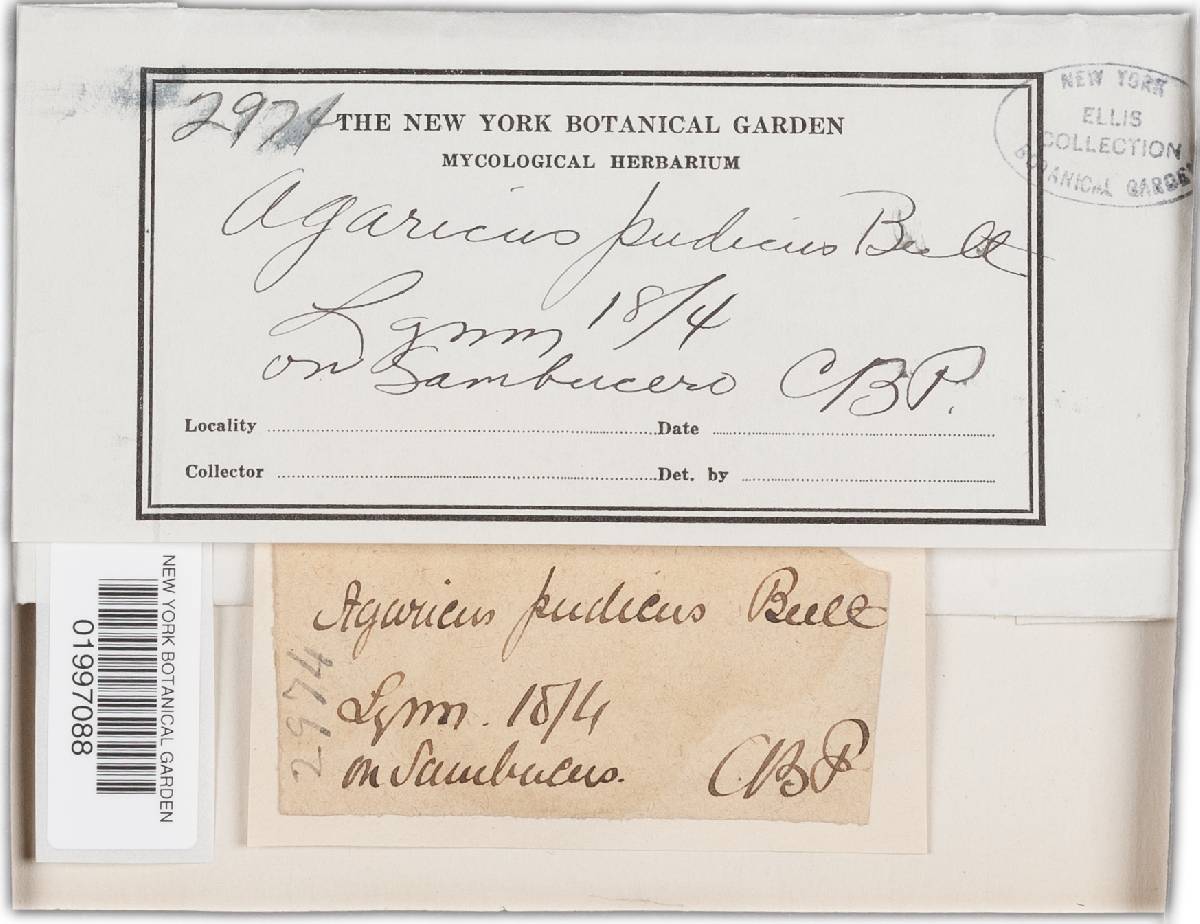 2974
THE NEW YORK BOTANICAL GARDEN
MYCOLOGICAL HERBARIUM
NEW YORK
ELLIS
COLLECTION
BOTANICAL GARDEN
Agaricus pudicus Bull
Lynn 18/4
on Sambucero CBP.
Locality Date
Collector Det. by
NEW YORK BOTANICAL GARDEN
01997088
Agaricus pudicus Bull
2974
Lynn. 18/4
on Sambucus. CBP